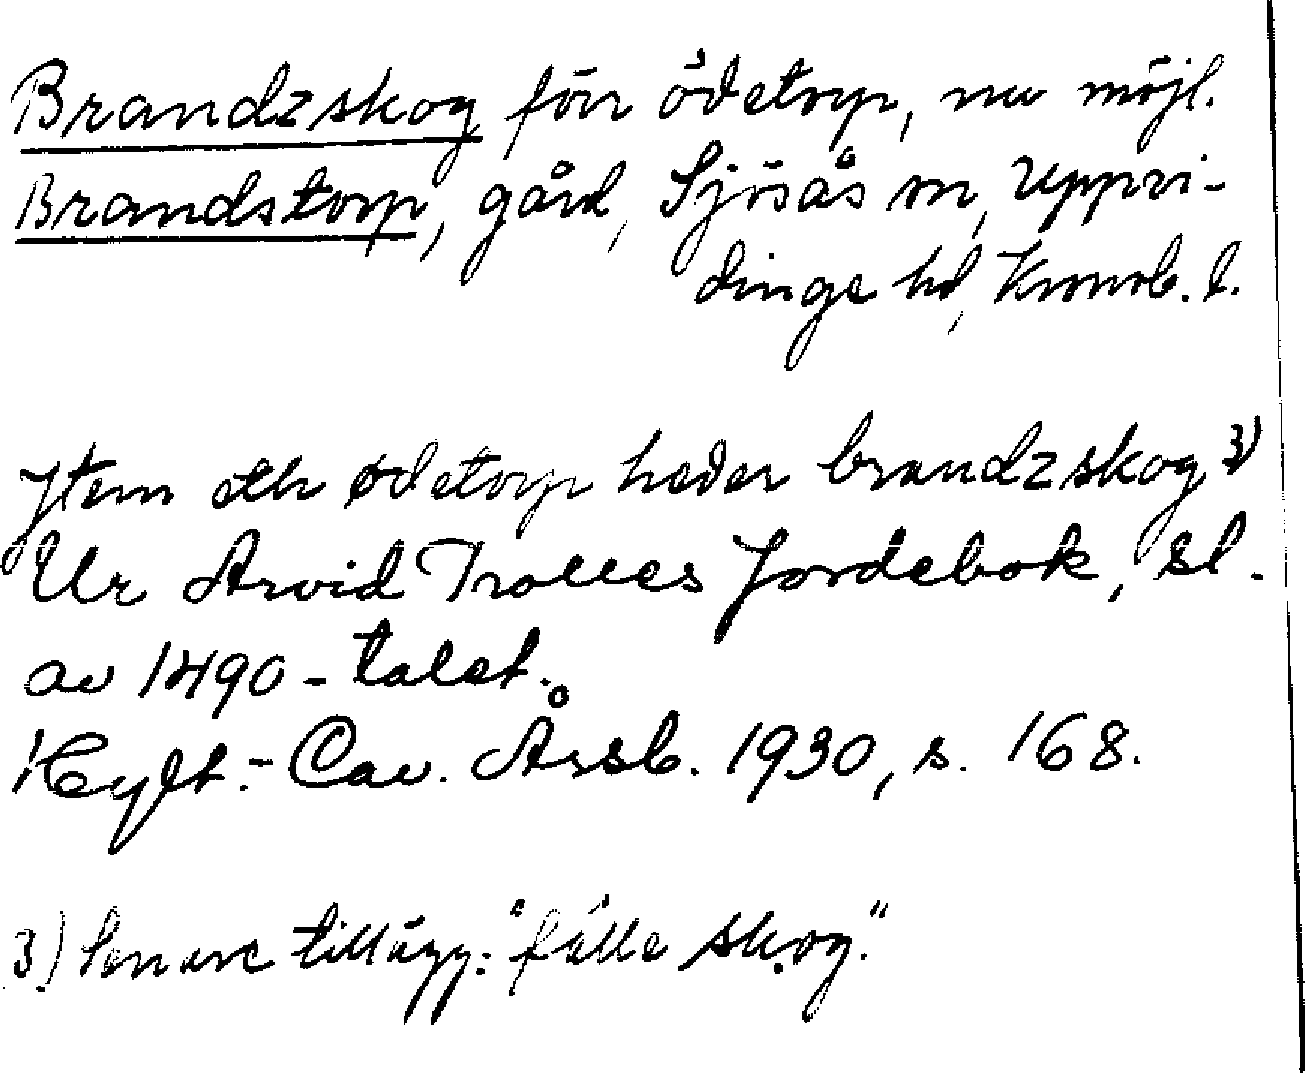 Brandzskog förr ödetorp, nu möjl.
Brandstorp, gård, Sjösås sn, Uppvi-
dinge hd, Kronob. l.
Jtem eth ødetorp heder brandzskog 3)
Ur Arvid Trolles Jordebok, sl.
av 1490-talet.
Hylt.-Cav. Årsb. 1930, s. 168.
3) Senare tillägg: "fälle skog."